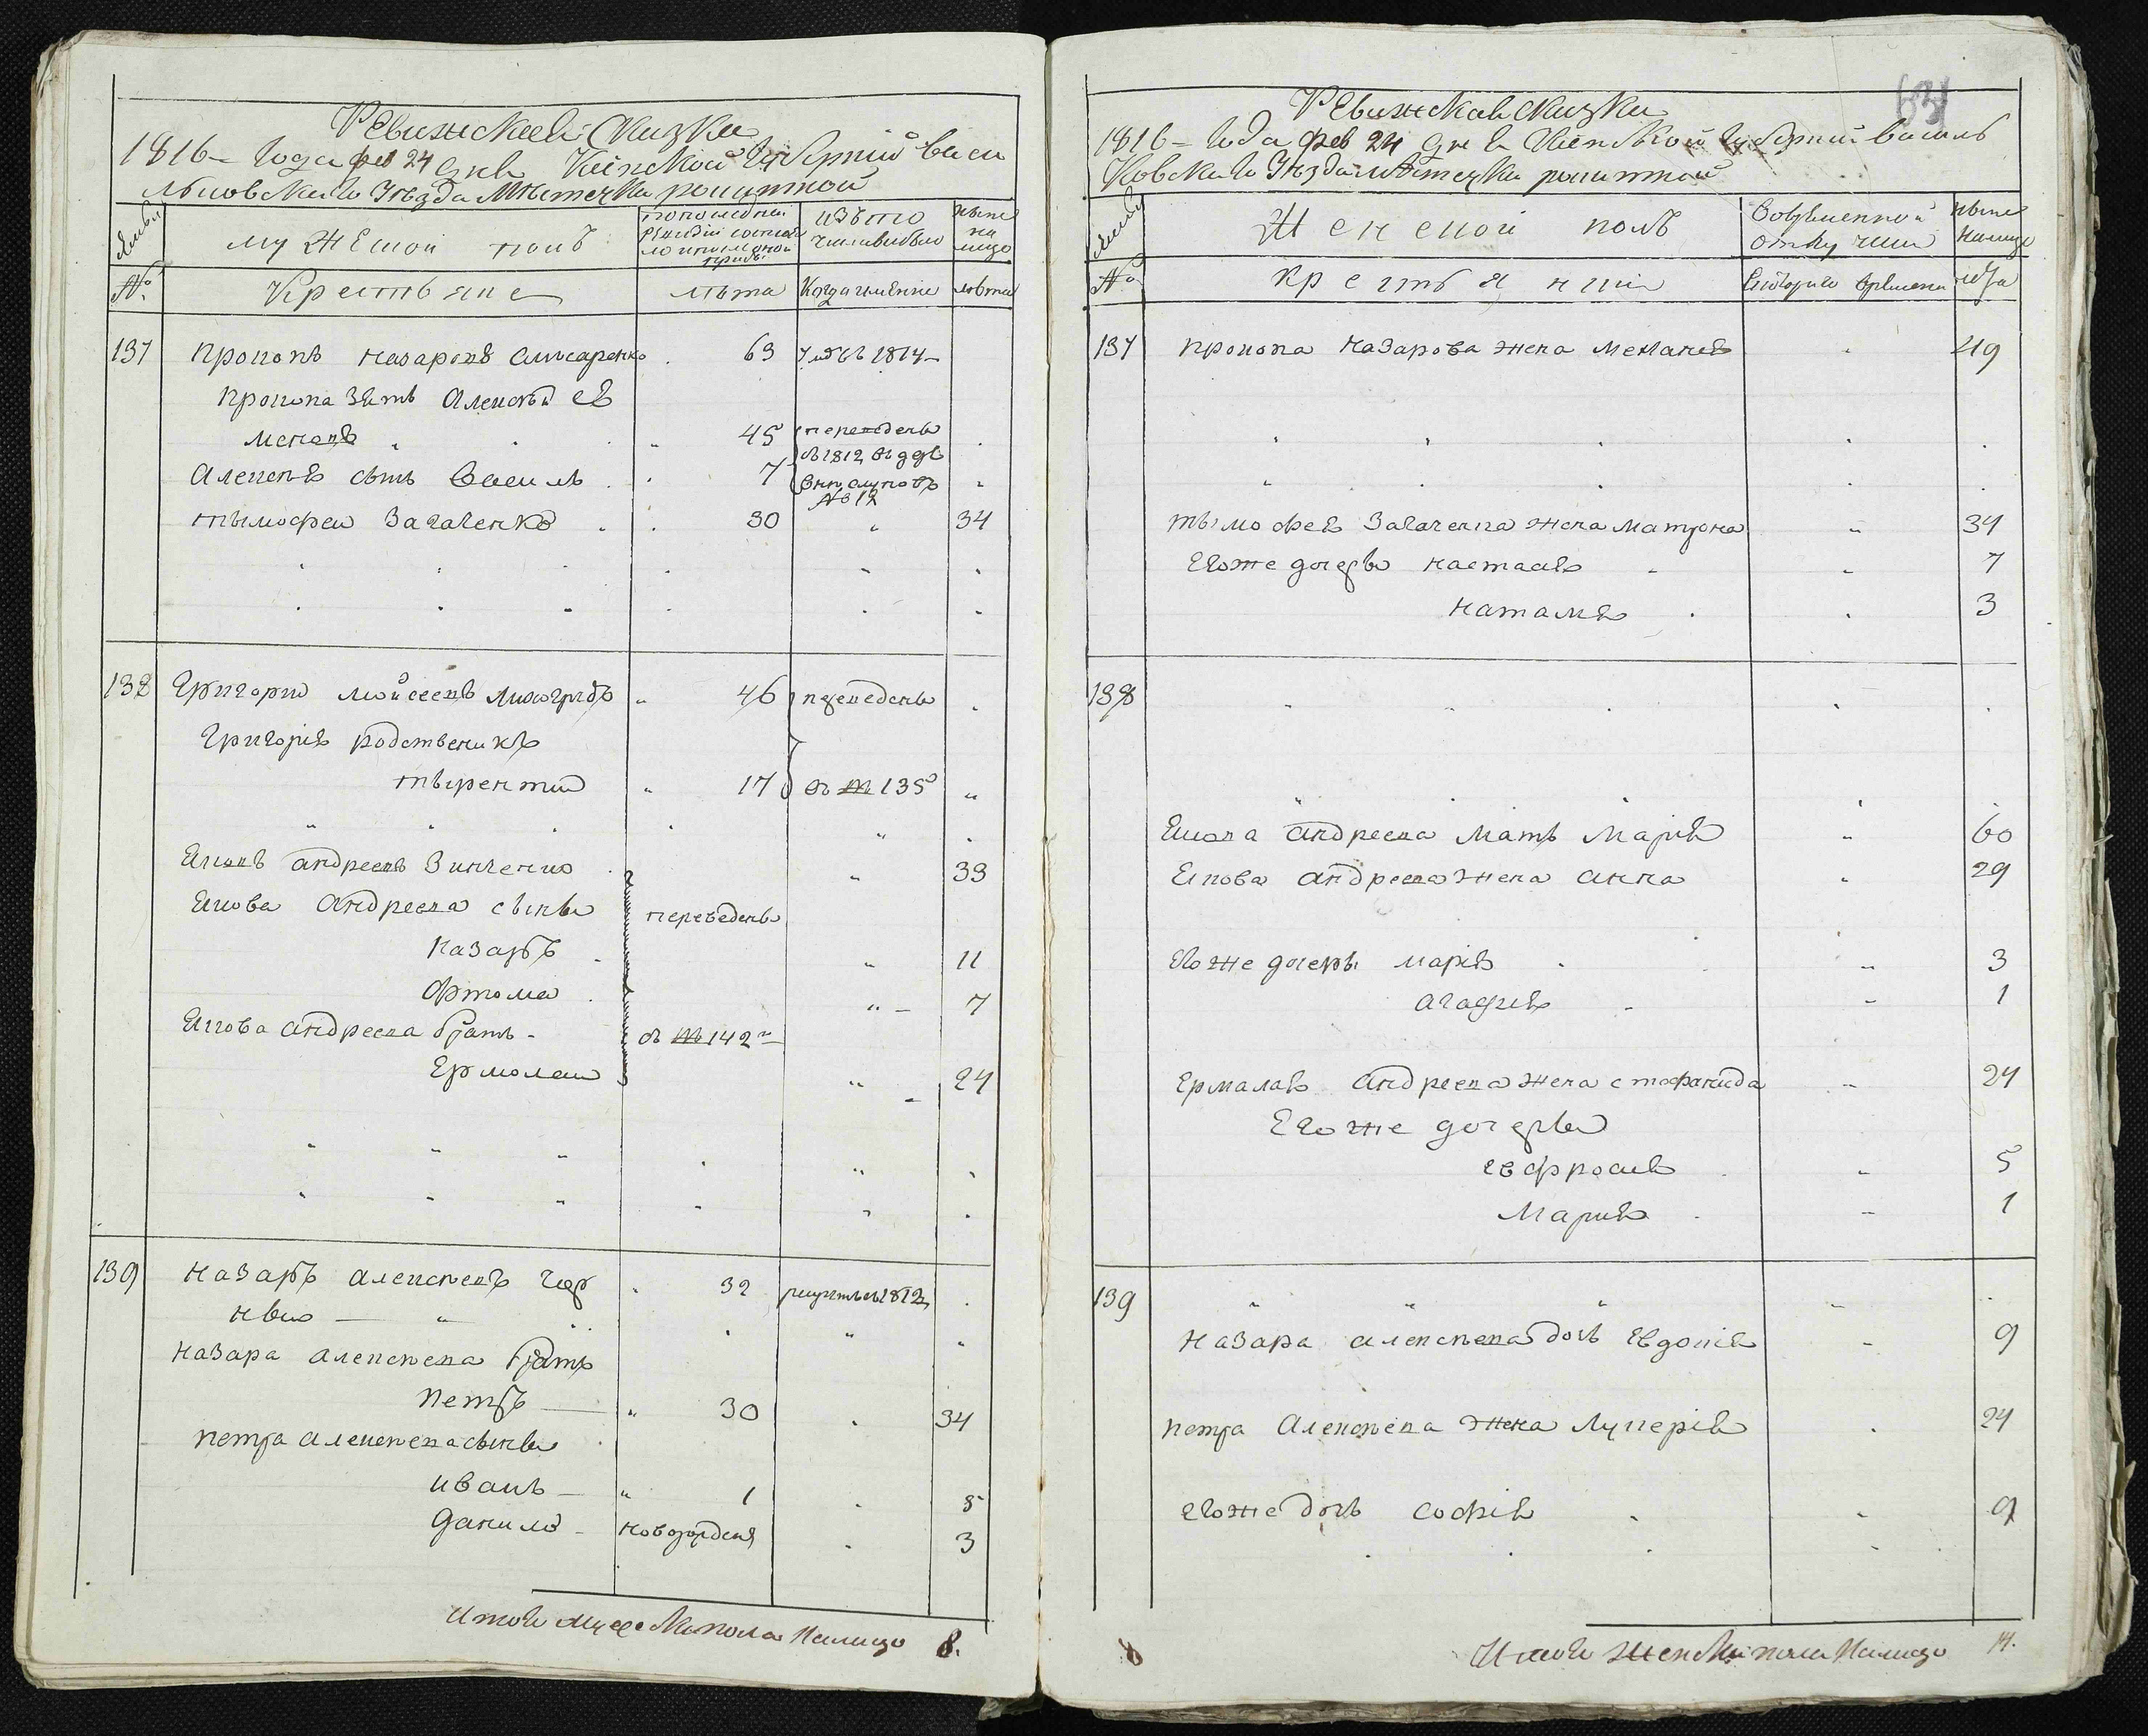 Ревижская Сказка
1816 года фев 24 дня Киевской Губерний васи
льковского Уезда Местечка рокитной
Семьи
мужеской полъ
по последней ревизии состояло
изъ того числа выбыло
ныне на лицо
№
Крестьяне
лета
Когда именно
лета
137 Прокопъ назаровъ 63 умеръ 1814
Прокопа зять Алексей
45 переведены
Алексея сынъ василь 7 в 1812
№ 12
тымофей Загаченко 30 34
138 Григорий мойсеевъ 46 переведены
Григория родственикъ
тырентий 17 въ № 135
Яковъ андреевъ Зинченко 33
Якова андреева сыны переведены
назаръ 11
Артома 7
Якова андреева братъ въ № 142
Ермолай 24
139 назаръ алексеевъ чор 32 1812
ный
назара алексеева братъ
петръ 30 34
петра алексеева сыны
иванъ 1 5
данило новорожденый 3
Итого мужеска пола налицо 8.
63
Ревижская Сказка
1816 года фев 24 дня Киевской Губерний василь
ковского Уезда местечка рокитной
Семьи
Женской полъ
Во временной отлучки
ныне налицо
№
крестьянки
Съ которого времени
лета
137 прокопа назарова жена меланія 49
тымофея Загаченка жена матрона 34
Егоже дочеры настася 7
наталія 3
138
Якова андреева мать марія 60
Якова андреева жена анна 29
Его же дочеры марія 3
агафія 1
Ермалая андреева жена стефанида 24
Его же дочеры
евфросия 5
Мария 1
139
назара алексеева дочь Евдокія 9
петра алексеева жена Лукерія 24
егоже дочь софія 9
8
Итого женска пола налицо 14.